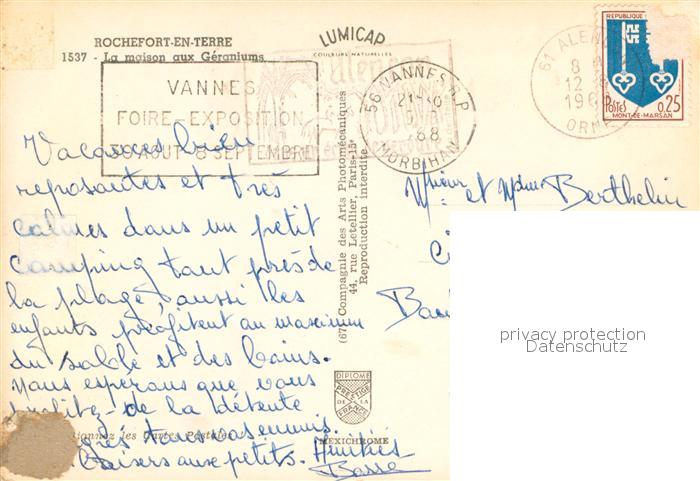 ROCHEFORT-EN-TERRE
1537 - La maison aux Géraniums
LUMICAP
COULEURS NATURELLES
VANNES
FOIRE-EXPOSITION
30 AOUT 8 SEPTEMBRE
56 VANNES R.P
21-30
68
MORBIHAN
61 ALEN
8
12
196
ORNE
REPUBLIQUE
POSTES
0,25
MONT-DE-MARSAN
Vacances bien
reposantes et très
calmes dans un petit
camping tout près de
la plage, aussi les
enfants profitent au maximum
du sable et des bains.
Nous espérons que vous
profitez de la détente
après tous vos ennuis.
Baisers aux petits. Amitiés
Basse
Mr et Mme Berthelin
(67) Compagnie des Arts Photomécaniques
44, rue Letellier, Paris-15e
Reproduction interdite.
DIPLOME
PRESTIGE
DE LA
FRANCE
MEXICHROME
les Cartes Postales
privacy protection
Datenschutz